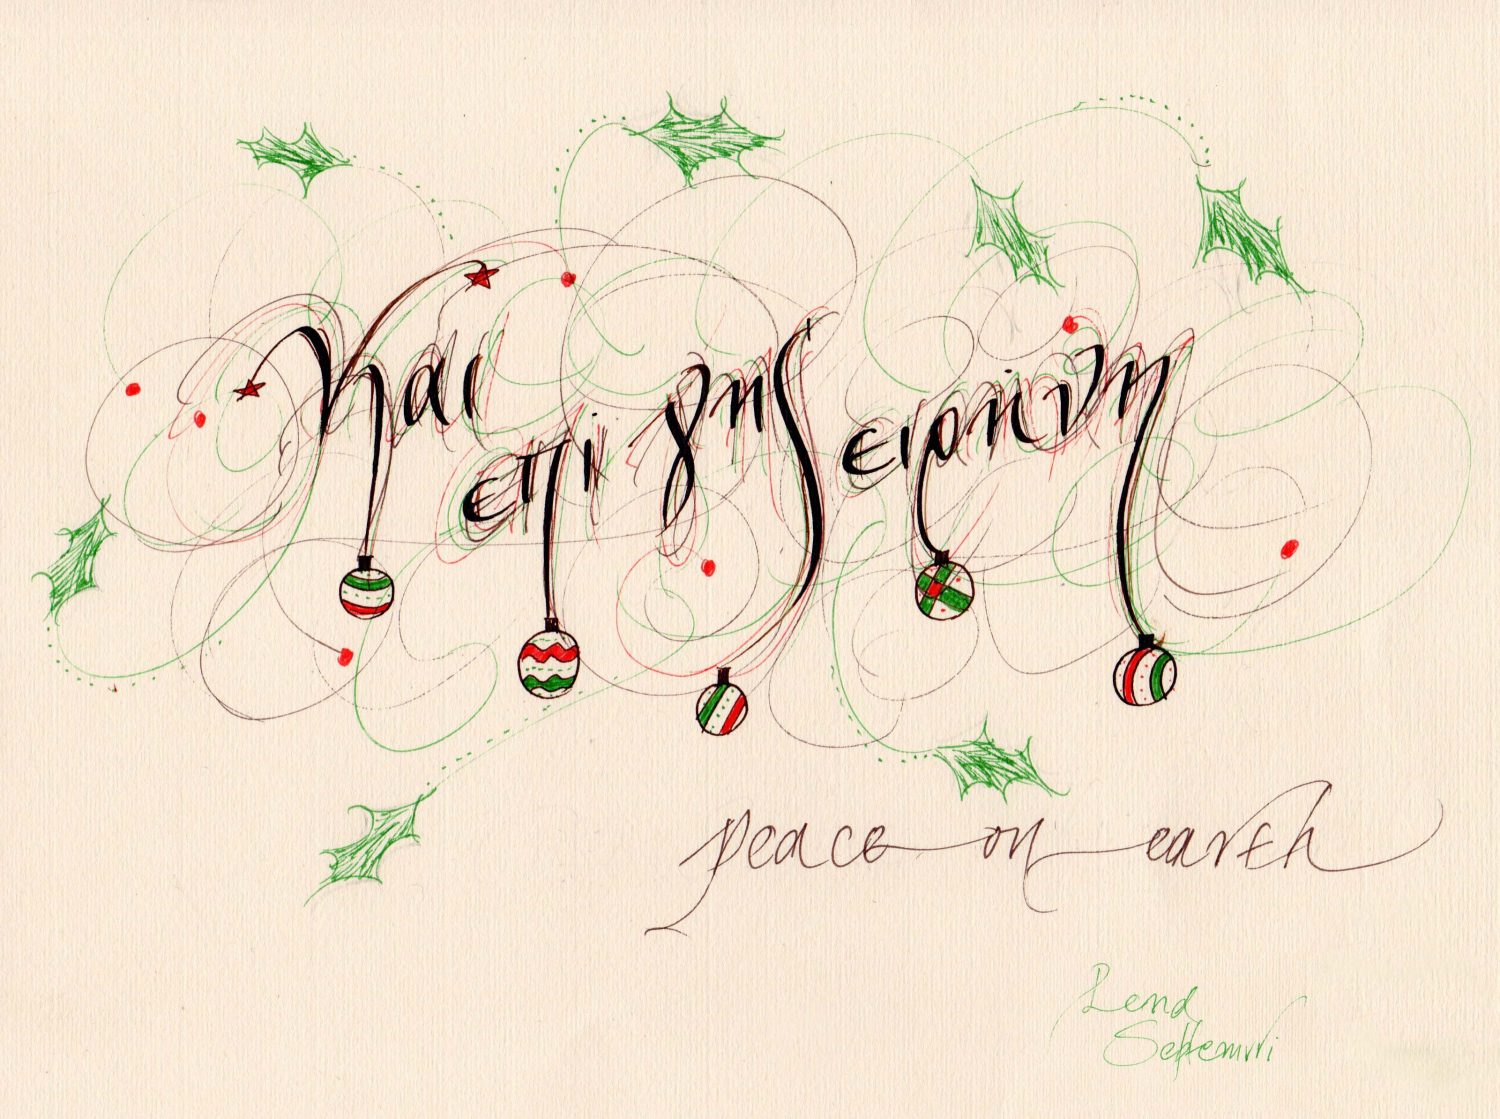 και επι γης ειρηνη
peace on earth
Lena
Septemvri